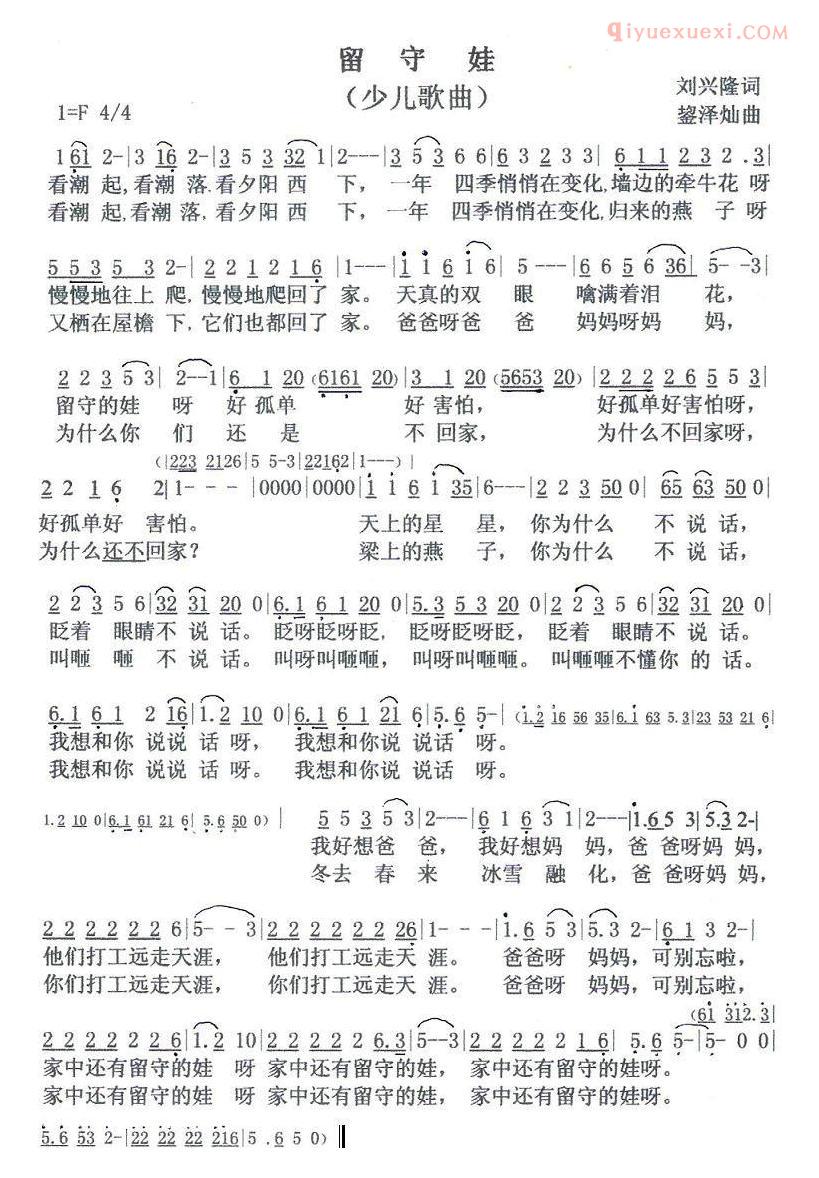 Qiyuexuexi.COM
留守娃
（少儿歌曲）
刘兴隆词
1=F 4/4
鋆泽灿曲
1 61 2-|3 16 2-|3 5 3 32 1|2---|3 5 3 6 6|6 3 2 3 3|6 1 1 2 3 2 . 3|
看潮 起,看潮 落.看夕阳 西 下, 一年 四季悄悄在变化,墙边的牵牛花 呀
看潮 起,看潮 落.看夕阳 西 下, 一年 四季悄悄在变化,归来的燕 子 呀
5 5 3 5 3 2-|2 2 1 2 1 6|1---|1 1 6 1 6|5 ---|6 6 5 6 36|5- -3|
慢慢地往上 爬, 慢慢地爬回了 家。天真的双 眼 噙满着泪 花,
又栖在屋檐 下,它们也都回了 家。爸爸呀爸 爸 妈妈呀妈 妈,
2 2 2 3 5 3|2--1|6 1 20（6161 20）|3 1 20（5653 20）|2 2 2 2 6 5 5 3|
留守的娃 呀 好 孤单 好 害怕, 好孤单好害怕呀,
为什么你 们 还 是 不 回家, 为什么不回家呀,
（|223 2126|5 5-3|22162|1---）|
2 2 1 6 2|1- - -|0000|0000|1 1 6 1 35|6---|2 2 3 50 0|65 63 50 0|
好孤单好 害怕。 天上的星 星, 你为什么 不 说 话,
为什么还不回家？ 梁上的燕 子, 你为什么 不 说 话,
2 2 3 5 6|32 31 20 0|6.1 6 1 20 0|5.3 5 3 20 0|2 2 3 5 6|32 31 20 0|
眨着 眼睛不 说 话。眨呀眨呀眨, 眨呀眨呀眨, 眨着 眼睛不 说 话。
叫咂 咂 不 说 话。叫呀叫咂咂, 叫呀叫咂咂。叫咂咂不懂你 的 话。
6.1 6 1 2 16|1.2 10 0|6.1 6 1 21 6|5.6 5-|（1.2 16 56 35|6.1 63 5.3|23 53 21 6|
我想和你 说说 话 呀, 我想和你说 说话 呀。
我想和你 说说 话 呀。 我想和你说 说话 呀。
1.2 10 0|6.1 61 21 6|5.6 50 0）| 5 5 3 5 3|2---|6 1 6 3 1|2---|1.65 3|5.3 2-|
我好想爸 爸, 我好想妈 妈,爸 爸呀妈 妈,
冬去 春 来 冰雪 融 化,爸 爸呀妈 妈,
2 2 2 2 2 2 6|5- - 3|2 2 2 2 2 2 26|1 - -|1.6 5 3|5.3 2-|6 1 3 2-|
他们打工远走天涯, 他们打工远走天 涯。 爸爸呀 妈妈,可别忘啦,
你们打工远走天涯, 你们打工远走天 涯。 爸爸呀 妈妈,可别忘啦,
（61 312.3|
2 2 2 2 2 2 6|1.2 10|2 2 2 2 2 6.3|5--3|2 2 2 2 2 1 6|5.6 5-|5--|
家中还有留守的娃 呀 家中还有留守的娃, 家中还有留守的娃呀。
家中还有留守的娃 呀 家中还有留守的娃, 家中还有留守的娃呀。
5.6 53 2-|22 22 22 216|5 .6 5 0）‖